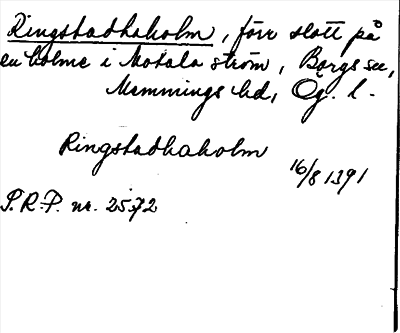 Ringstadhaholm, förr slott på
en holme i Motala ström, Borgs sn,
Memmings hd, Ög. l.
Ringstadhaholm
16/8 1391
S.R.P. nr. 2572